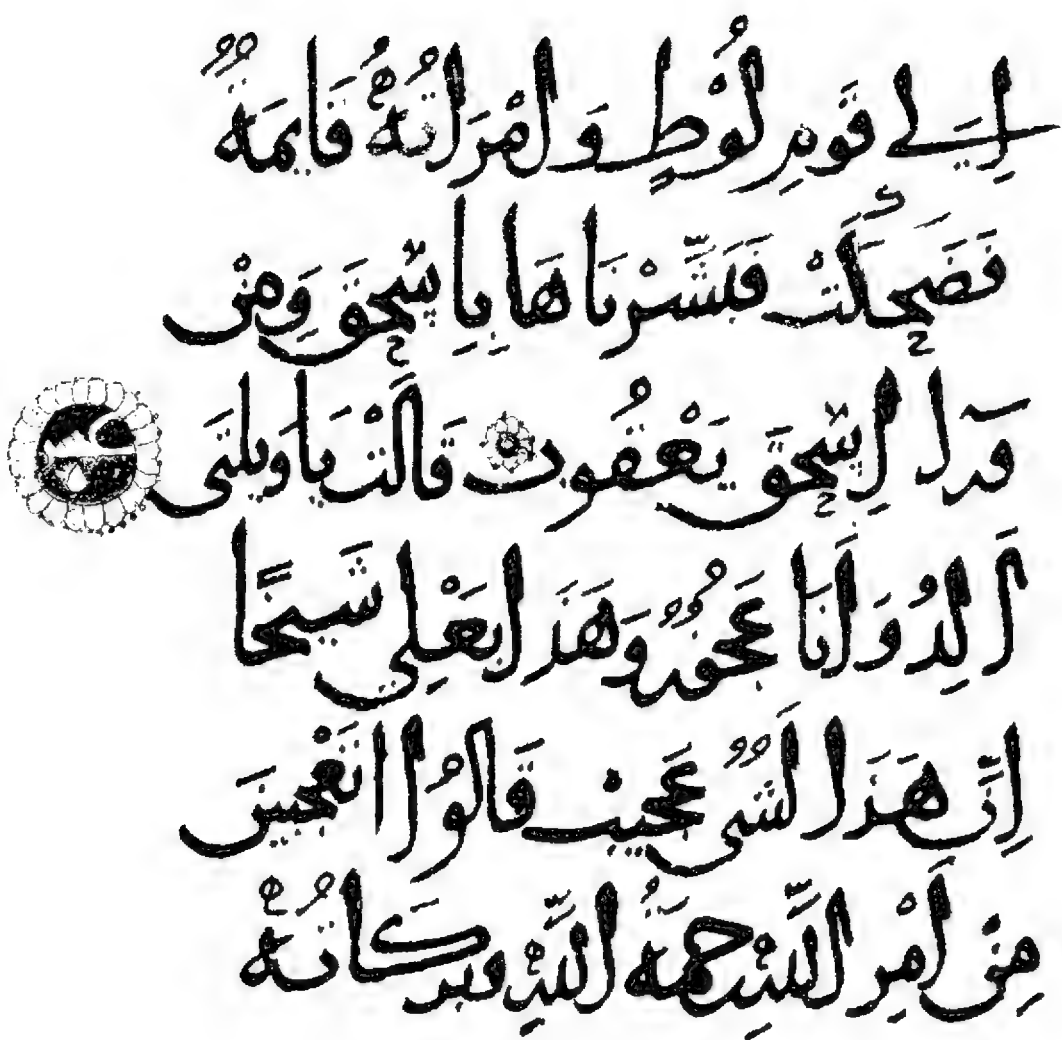 اِلَي قَومِ لُوْطٍ وَامْرَاَتُهُ قَايِمَةٌ
فَضَحِكَتْ فَبَشَّرْنَاهَا بِاِسْحٰقَ وَمِنْ
وَرآ اِسْحٰقَ يَعْقُوبَ قَالَتْ يَاوَيلَتَى
ءَاَلِدُ وَاَنَا عَجُوزٌ وَهَذَا بَعْلِي شَيخًا
اِنَّ هَذَا لَشَيٌ عَجِيبٌ قَالُوْا اَتَعْجَبِينَ
مِنْ اَمْرِ اللَّهِ رَحْمَةُ اللَّهِ وَبَرَكَاتُهُ